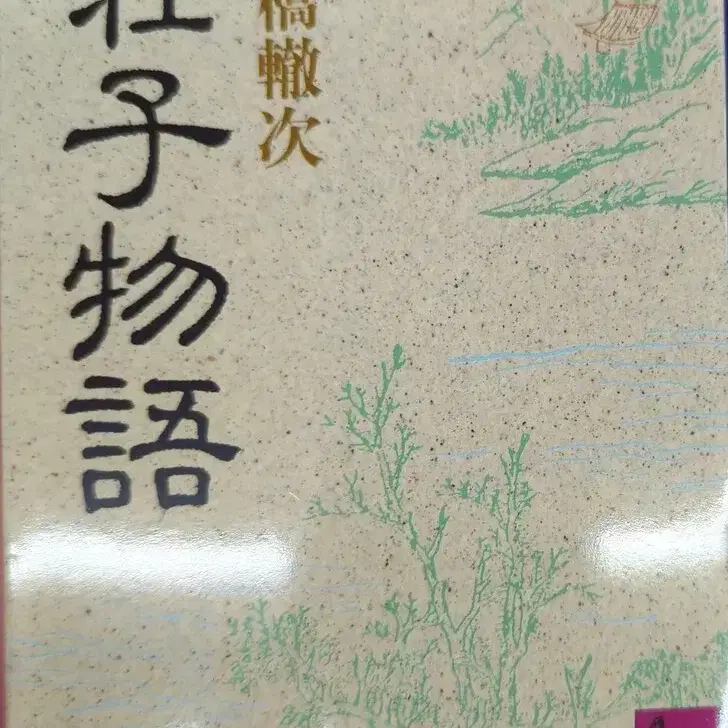 荘子物語
橋轍次